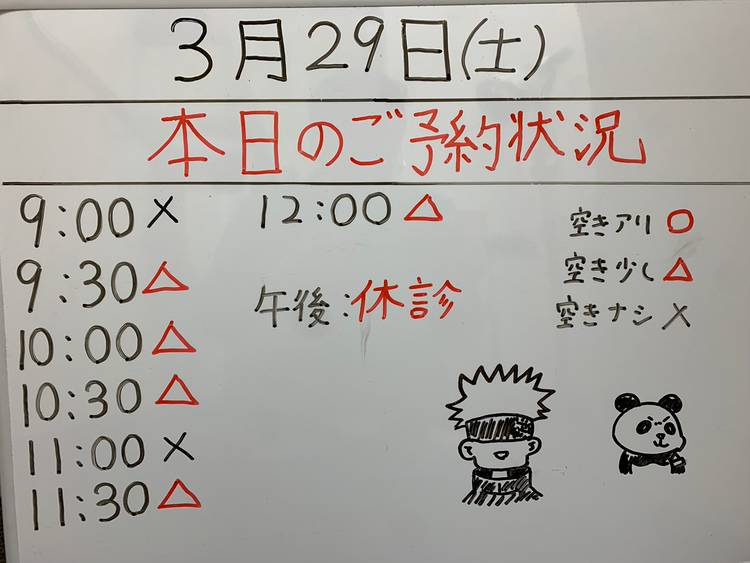 3月29日(土)
本日のご予約状況
9:00×
9:30△
10:00△
10:30△
11:00×
11:30△
12:00△
午後:休診
空きアリ○
空き少し△
空きナシ×